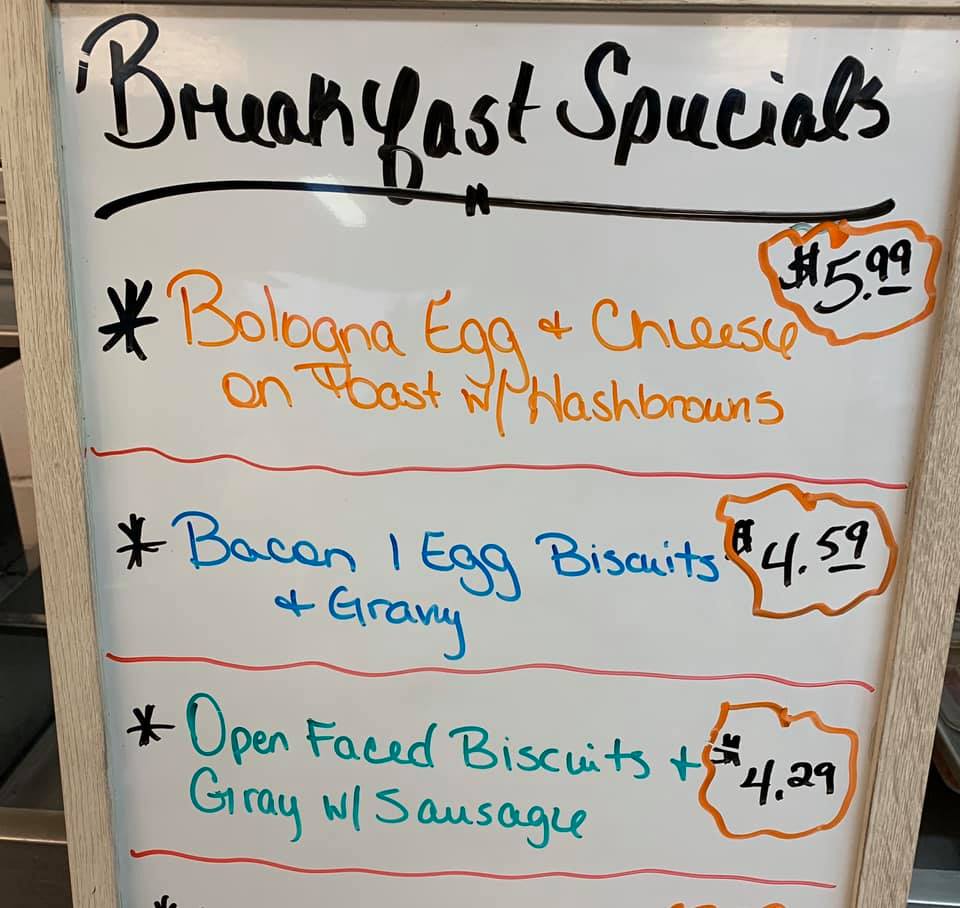 Breakfast Specials
$5.99
* Bologna Egg & Cheese
on Toast w/ Hashbrowns
* Bacon 1 Egg Biscuits $4.59
& Gravy
* Open Faced Biscuits + $4.29
Gray w/ Sausage
*